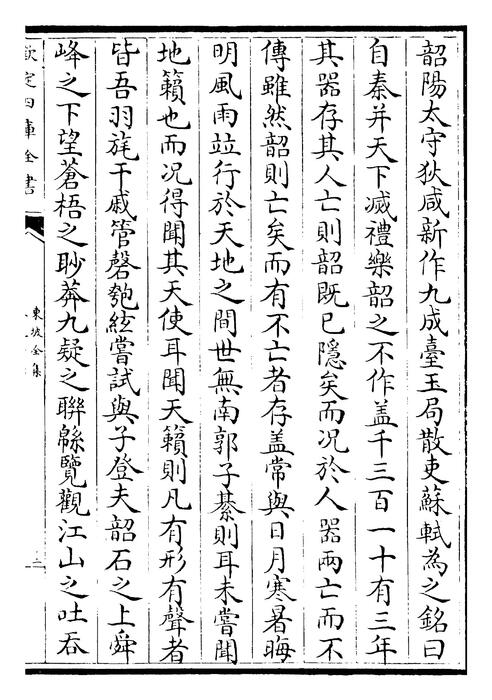 韶陽太守狄咸新作九成臺玉局散吏蘇軾為之銘曰
自秦并天下滅禮樂韶之不作盖千三百一十有三年
其器存其人亡則韶既已隱矣而况於人器兩亡而不
傳雖然韶則亡矣而有不亡者存盖常與日月寒暑晦
明風雨竝行於天地之間世無南郭子綦則耳未嘗聞
地籟也而况得聞其天使耳聞天籟則凡有形有聲者
皆吾羽旄干戚管磬匏絃嘗試與子登夫韶石之上舜
峰之下望蒼梧之眇莽九疑之聯緜覽觀江山之吐吞
欽定四庫全書
東坡全集